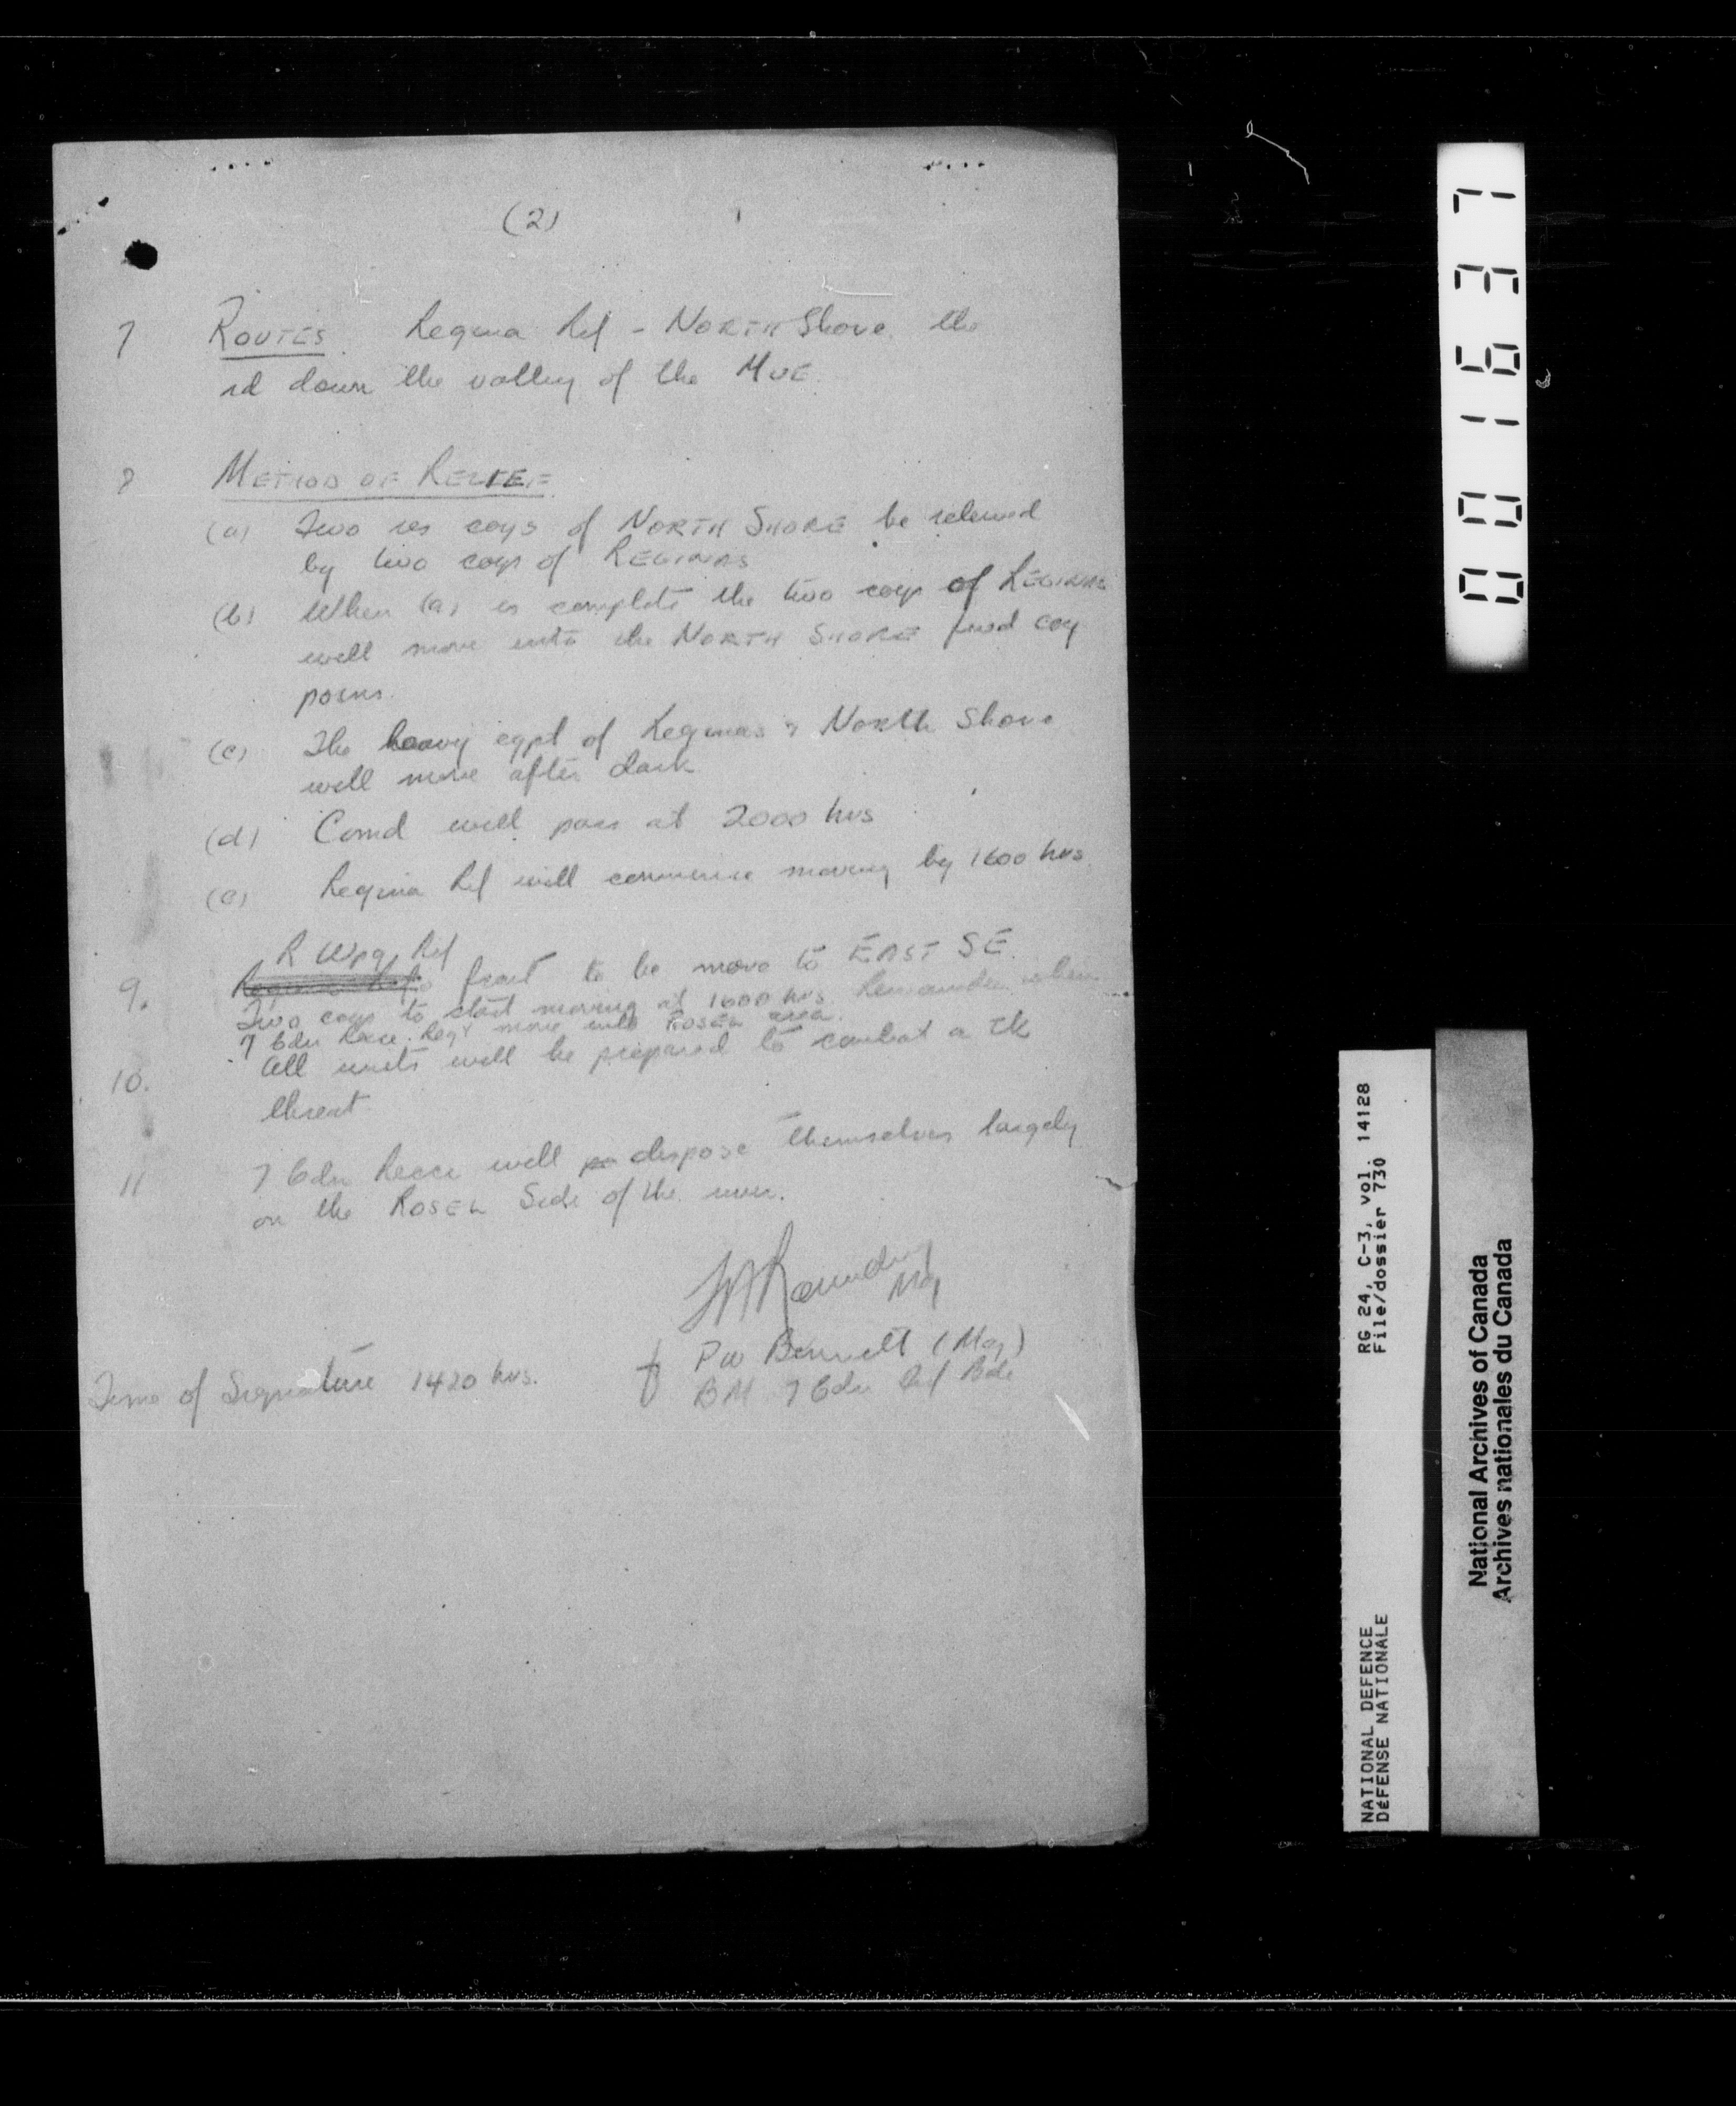 (2)
7 ROUTES. Regina Rif - NORTH Shore. the
rd down the valley of the MUE.
8 METHOD OF RELIEF
(a) Two res coys of NORTH SHORE be relieved
by two coys of REGINAS
(b) When (a) is complete the two coys of REGINAS
will move into the NORTH SHORE fwd coy
posns.
(c) The heavy eqpt of Reginas & North Shore
will move after dark
(d) Comd will pass at 2000 hrs
(e) Regina Rif will commence moving by 1600 hrs.
R Wpg Rif
9. front to be move to EAST SE.
Two coys to start moving at 1600 hrs Remainder when
7 Cdn Recce Regt move into ROSEL area.
10. All units will be prepared to combat a tk
threat.
11 7 Cdn Recce will dispose themselves largely
on the ROSEL Side of the river.
Maj
P W Bennett (Maj)
Time of Signature 1420 hrs.
BM 7 Cdn Inf Bde
001637
RG 24, C-3, vol. 14128
File/dossier 730
NATIONAL DEFENCE
DÉFENSE NATIONALE
National Archives of Canada
Archives nationales du Canada